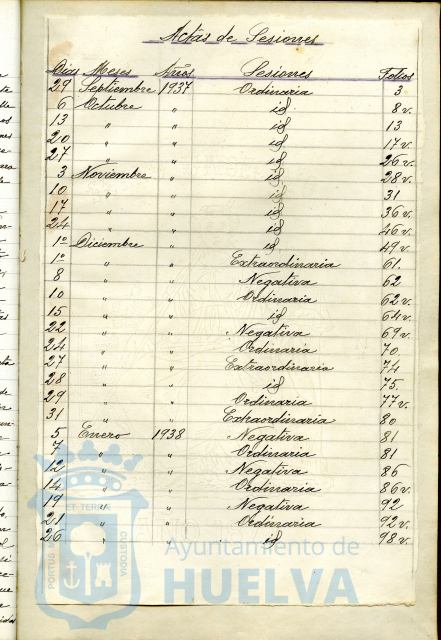 Actas de Sesiones
Días Meses Años Sesiones Folios
29 Septiembre 1937 Ordinaria 3
6 Octubre " id 8 v.
13 " " id 13
20 " " id 17 v.
27 " " id 26 v.
3 Noviembre " id 28 v.
10 " " id 31
17 " " id 36 v.
24 " " id 46 v.
1º Diciembre " id 49 v.
1º " " Extraordinaria 61.
8 " " Negativa 62
10 " " Ordinaria 62 v.
15 " " id 64 v.
22 " " Negativa 69 v.
24 " " Ordinaria 70
27 " " Extraordinaria 74
28 " " id 75
29 " " Ordinaria 77 v.
31 " " Extraordinaria 80
5 Enero 1938 Negativa 81
7 " " Ordinaria 81
12 " " Negativa 86
14 " " Ordinaria 86 v.
19 " " Negativa 92
21 " " Ordinaria 92 v.
26 " " id 98 v.
PORTUS ET TERRE CUSTODIA
Ayuntamiento de
HUELVA